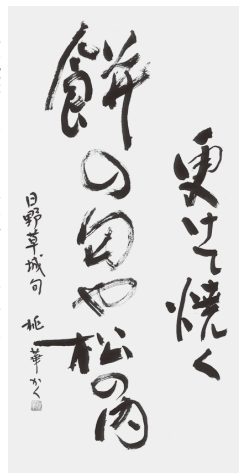 更けて焼く
餅の匂や松の内
日野草城句 桃華かく